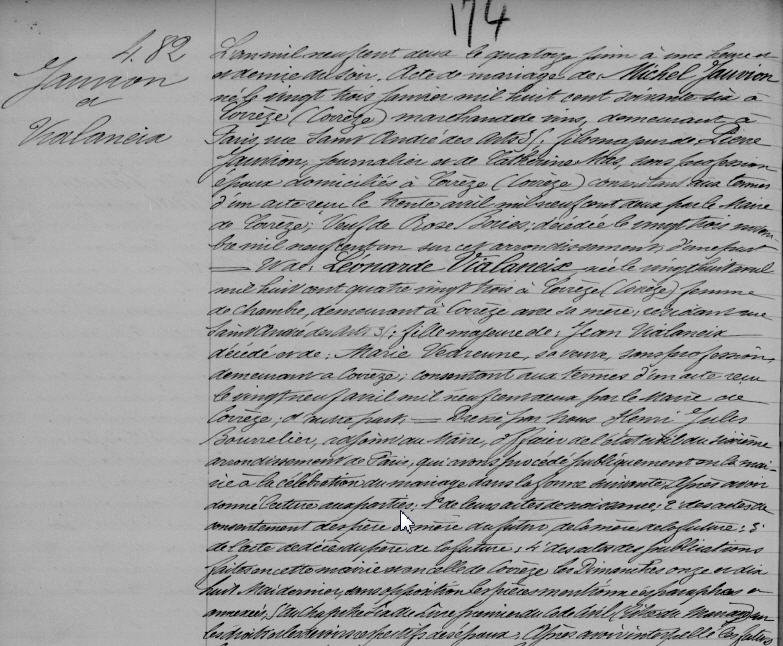 174
482
Jauvion
et
Vialaneix
L'an mil neuf cent deux le quatorze juin à une heure et
et demie du soir. Acte de mariage de: Michel Jauvion
né le vingt trois janvier mil huit cent soixante six à
Corrèze (Corrèze) marchand de vins, demeurant à
Paris, rue Saint André des Arts 35; fils majeur de: Pierre
Jauvion, journalier et de Catherine Mas, sans profession
époux domiciliés à Corrèze (Corrèze) consentant aux termes
d'un acte reçu le trente avril mil neuf cent deux par le Maire
de Corrèze; Veuf de Rose Bories, décédée le vingt trois novem
bre mil neuf cent un sur cet arrondissement; d'une part
— Et de: Léonarde Vialaneix née le vingt huit avril
mil huit cent quatre vingt trois à Corrèze (Corrèze) femme
de chambre, demeurant à Corrèze avec sa mère; et ci-dant rue
Saint André des Arts 35; fille majeure de: Jean Vialaneix
décédé et de: Marie Vedrenne, sa veuve, sans profession,
demeurant à Corrèze; consentant aux termes d'un acte reçu
le vingt neuf avril mil neuf cent deux par le Maire de
Corrèze; d'autre part. — Dressé par Nous Henri Jules
Bourrelier, adjoint au Maire, officier de l'état civil du sixième
arrondissement de Paris, qui avons procédé publiquement en la mai-
rie à la célébration du mariage dans la forme suivante: Après avoir
donné lecture aux parties: 1° de leurs actes de naissance; 2° des actes de
consentement des père et mère du futur, de la mère de la future; 3°
de l'acte de décès du père de la future; 4° des actes des publications
faites en cette mairie et en celle de Corrèze les Dimanches onze et dix
huit Mai dernier, sans opposition les pièces mentionnées paraphées et
annexées; 5° du chapitre six du livre premier du Code Civil (Titre du Mariage) sur
les droits et les devoirs respectifs des époux; Après avoir interpellé les futurs